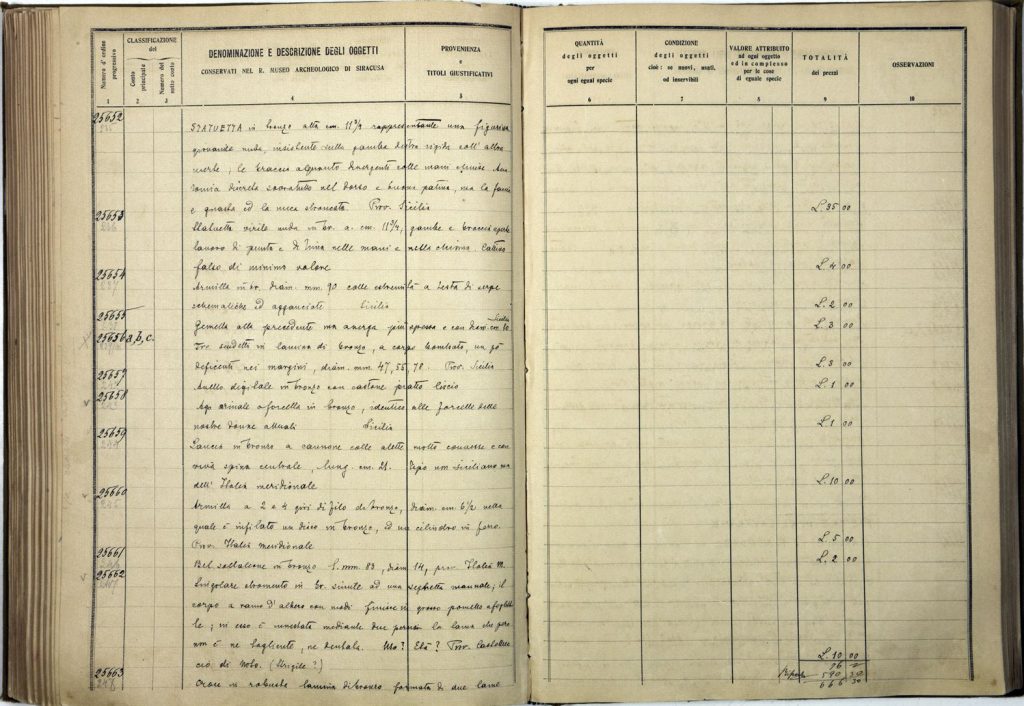 Numero d'ordine progressivo
CLASSIFICAZIONE del
Conto principale
Numero del sotto conto
DENOMINAZIONE E DESCRIZIONE DEGLI OGGETTI
CONSERVATI NEL R. MUSEO ARCHEOLOGICO DI SIRACUSA
PROVENIENZA
e
TITOLI GIUSTIFICATIVI
1 2 3 4 5
25652
STATUETTA in bronzo alta cm. 11 3/4 rappresentante una figurina
giovanile nuda, insistente sulla gamba destra rigida coll'altra
inerte, le braccia alquanto divergenti colle mani
discreta sopratutto nel dorso e buona patina, ma la faccia
e guasta ed la nuca stroncata. Prov. Sicilia
25653
Statuetta virile nuda in br. a. cm. 11 3/4, gambe e braccia aperte
lavoro di punta e di lima nelle mani e nella chioma. Cattivo
falso di minimo valore
25654
237
Armilla in br. diam. mm. 90 colle estremità a testa di serpe
schematiche ed agganciate Sicilia
25655
Gemella alla precedente ma ancora più spessa e con diam. cm. 10
Sicilia
25656 a, b, c.
Tre in lamina di bronzo, a corpo bombato, un pò
deficenti nei margini, diam. mm. 47, 55, 78. Prov. Sicilia
25657
Anello digitale in bronzo con castone piatto liscio
25658
Ago crinale a forcella in bronzo, identico alle forcelle delle
nostre donne attuali Sicilia
25659
Lancia in bronzo a cannone colle alette molto connesse e con
viva spina centrale, lung. cm. 21. Tipo non siciliano ma
dell'Italia meridionale
25660
Armilla a 2 e 4 giri di filo di bronzo, diam. cm 6 1/2 nella
quale è infilato un disco in bronzo, ed un cilindro in ferro.
Prov. Italia meridionale
25661
Bel saltaleone in bronzo l. mm. 83, diam. 14, prov. Italia M.
25662
Singolare stromento in br. simile ad una seghetta manuale; il
corpo a ramo d'albero con nodi finisce in grosso pomello
; in esso è innestata mediante due perni la lama che però
non è ne tagliente, ne dentata. Uso? Età? Prov. Castelluc
cio di Noto. (Strigile?)
25663
in robusta lamina di bronzo formata di due lame
QUANTITÀ
degli oggetti
per
ogni egual specie
CONDIZIONE
degli oggetti
cioè: se nuovi, usati,
od inservibili
VALORE ATTRIBUITO
ad ogni oggetto
ed in complesso
per le cose
di eguale specie
TOTALITÀ
dei prezzi
OSSERVAZIONI
6 7 8 9 10
L. 35 00
L. 4 00
L. 2 00
L. 3 00
L. 3 00
L. 1 00
L. 1 00
L. 10 00
L. 5 00
L. 2 00
L. 10 00
76
Riporto 590 30
666 30